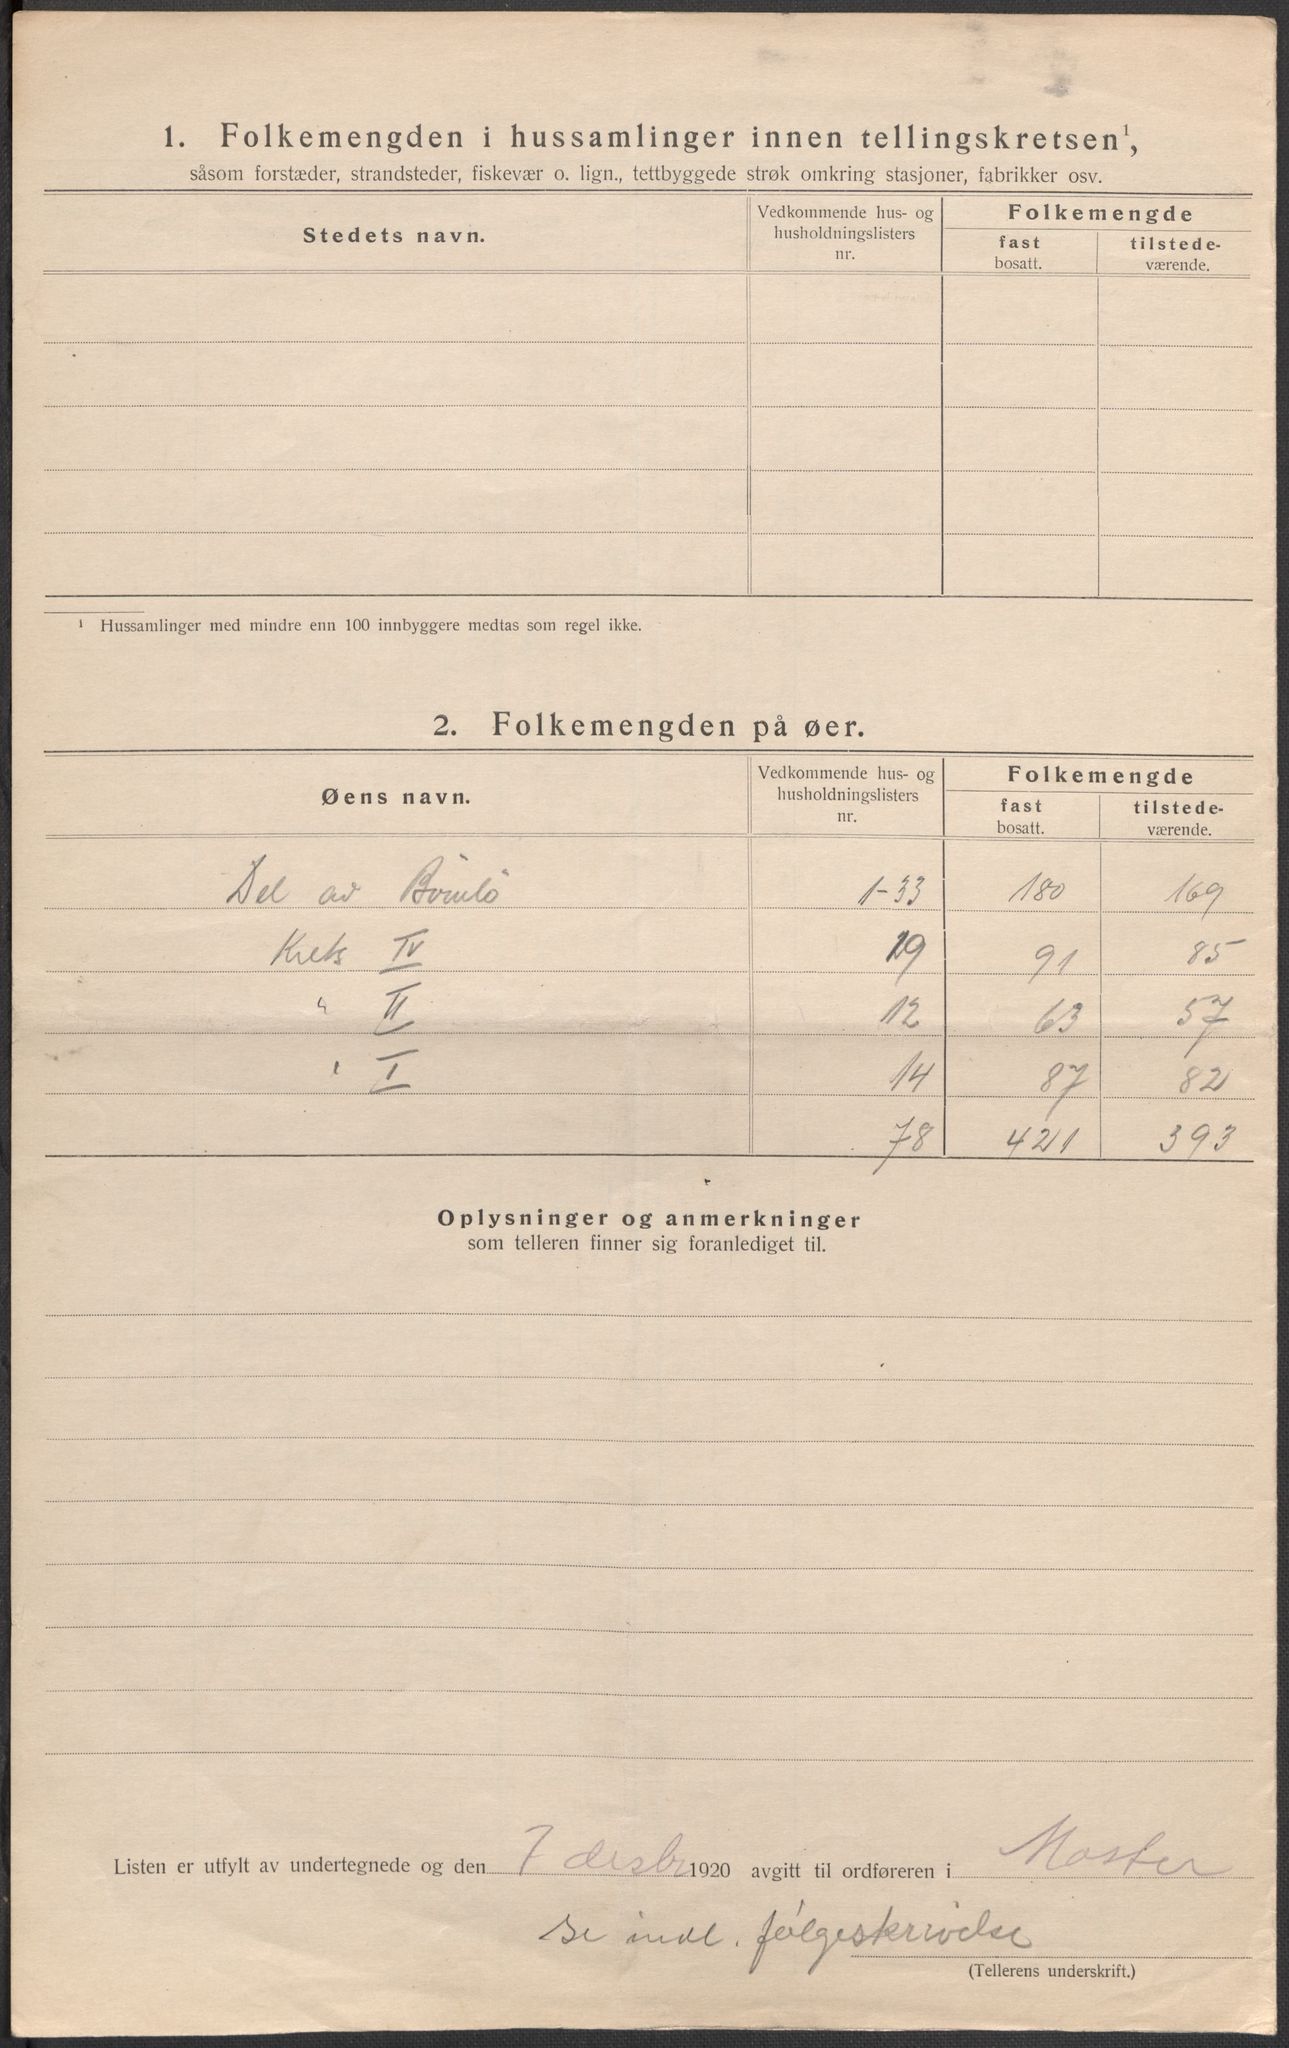 1. Folkemengden i hussamlinger innen tellingskretsen¹,
såsom forstæder, strandsteder, fiskevær o. lign., tettbyggede strøk omkring stasjoner, fabrikker osv.
Stedets navn.
Vedkommende hus- og
husholdningslisters
nr.
Folkemengde
fast
bosatt.
tilstede-
værende.
¹ Hussamlinger med mindre enn 100 innbyggere medtas som regel ikke.
2. Folkemengden på øer.
Øens navn.
Vedkommende hus- og
husholdningslisters
nr.
Folkemengde
fast
bosatt.
tilstede-
værende.
Del av Bömlö 1-33 180 169
Krets IV 19 91 85
" II 12 63 57
" I 14 87 82
78 421 393
Oplysninger og anmerkninger
som telleren finner sig foranlediget til.
Listen er utfylt av undertegnede og den 7 desbr 1920 avgitt til ordføreren i Moster
se indl. følgeskrivelse
(Tellerens underskrift.)